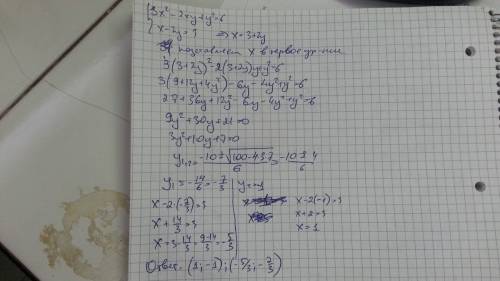 3x² - 2xy + y² = 6
x - 2y = 3 ⇒ x = 3 + 2y
подставляем x в первое ур-ние
3(3+2y)² - 2(3+2y)y + y² = 6
3(9+12y+4y²) - 6y - 4y² + y² = 6
27 + 36y + 12y² - 6y - 4y² + y² = 6
9y² + 30y + 21 = 0
3y² + 10y + 7 = 0
y₁,₂ = (-10 ± √(100-4·3·7))/6 = (-10 ± 4)/6
y₁ = -14/6 = -7/3 y = -1
x - 2·(-7/3) = 3 x - 2(-1) = 3
x + 14/3 = 3 x + 2 = 3
x = 3 - 14/3 = (9-14)/3 = -5/3 x = 1
Ответ: (1; -1); (-5/3; -7/3)